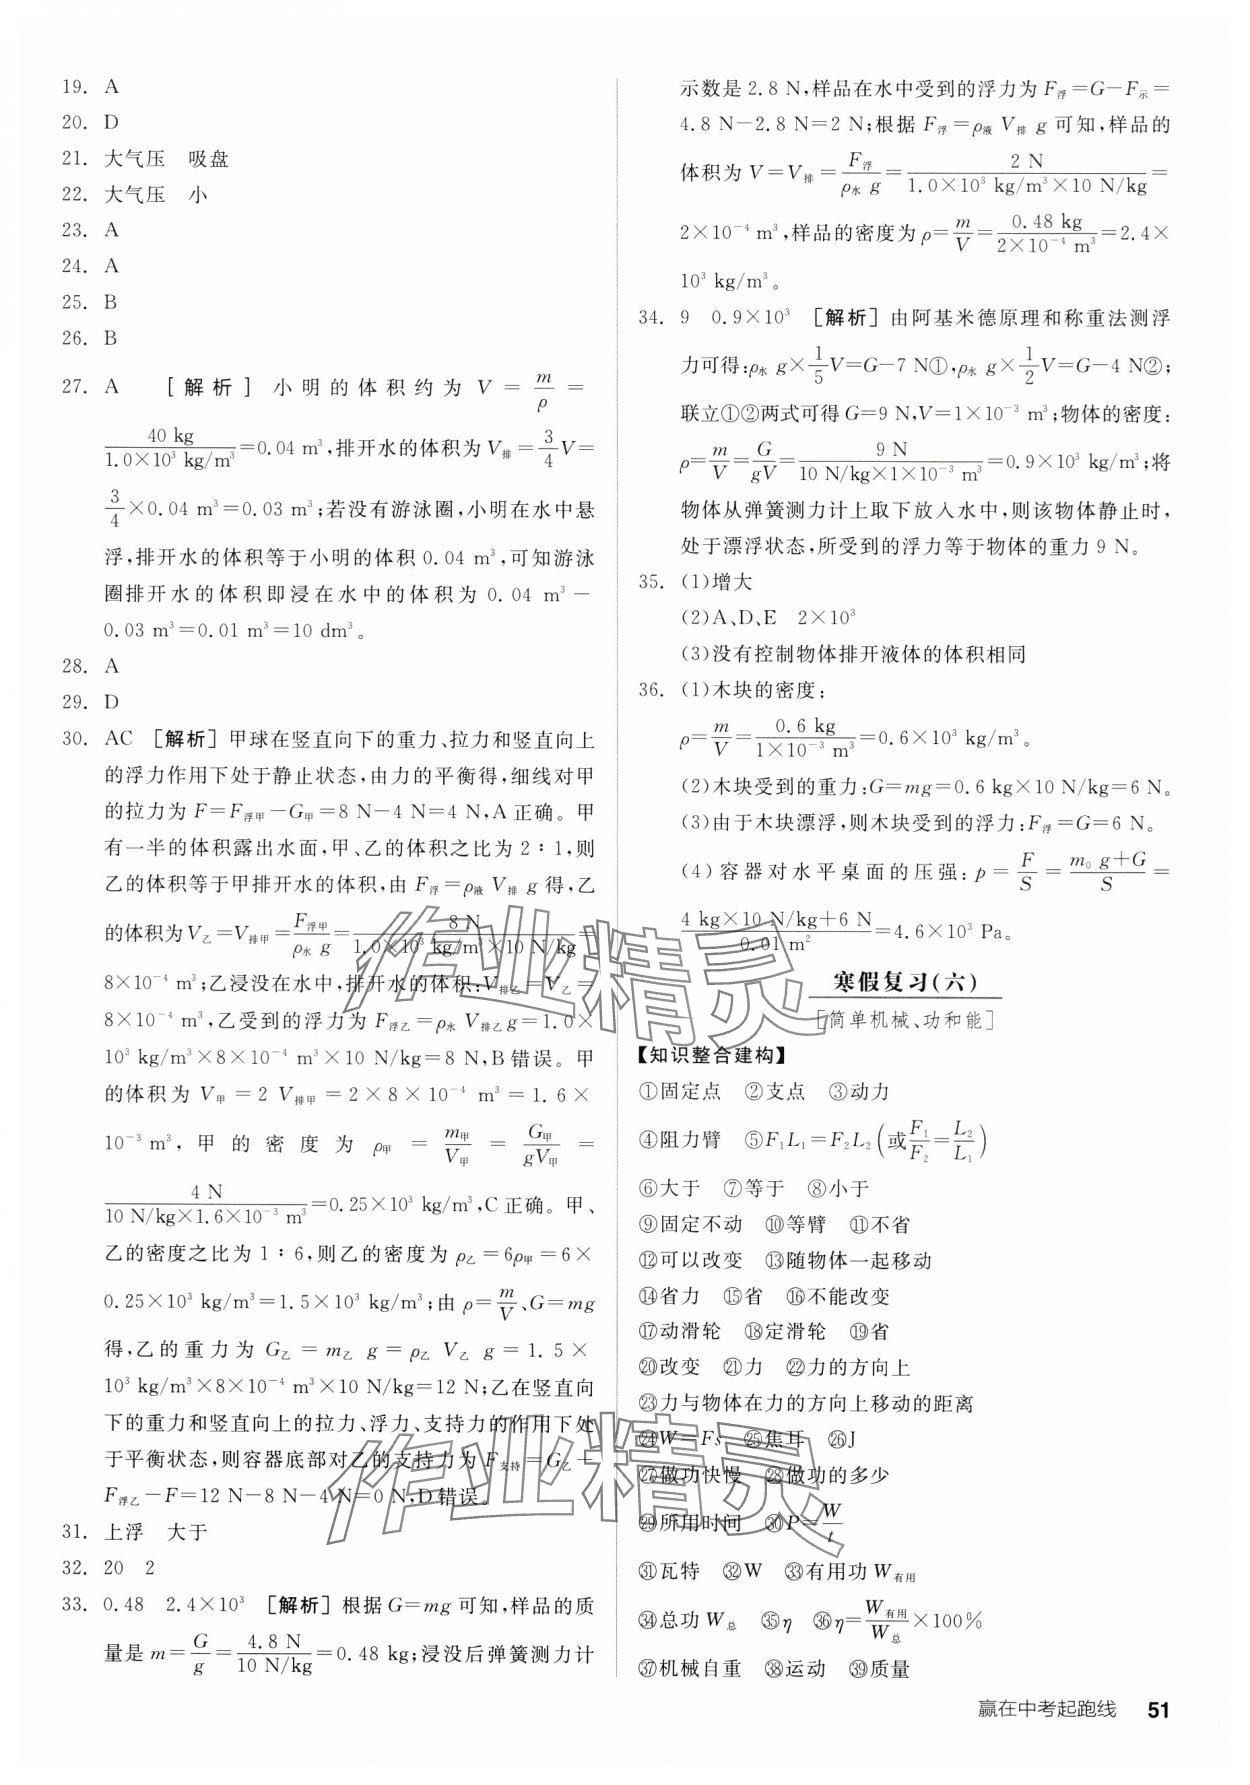 19. A
20. D
21. 大气压 吸盘
22. 大气压 小
23. A
24. A
25. B
26. B
27. A [解析] 小明的体积约为 V = m/ρ =
40 kg/(1.0×10³ kg/m³)=0.04 m³,排开水的体积为 V排=3/4V=
3/4×0.04 m³=0.03 m³;若没有游泳圈,小明在水中悬
浮,排开水的体积等于小明的体积 0.04 m³,可知游泳
圈排开水的体积即浸在水中的体积为 0.04 m³-
0.03 m³=0.01 m³=10 dm³。
28. A
29. D
30. AC [解析] 甲球在竖直向下的重力、拉力和竖直向上
的浮力作用下处于静止状态,由力的平衡得,细线对甲
的拉力为 F=F浮甲-G甲=8 N-4 N=4 N,A 正确。甲
有一半的体积露出水面,甲、乙的体积之比为 2∶1,则
乙的体积等于甲排开水的体积,由 F浮=ρ液 V排 g 得,乙
的体积为V乙=V排甲=F浮甲/(ρ水 g)=8 N/(1.0×10³ kg/m³×10 N/kg)=
8×10⁻⁴ m³;乙浸没在水中,排开水的体积:V排乙=V乙=
8×10⁻⁴ m³,乙受到的浮力为 F浮乙=ρ水 V排乙g=1.0×
10³ kg/m³×8×10⁻⁴ m³×10 N/kg=8 N,B 错误。甲
的体积为 V甲=2 V排甲=2×8×10⁻⁴ m³=1.6×
10⁻³ m³,甲的密度为 ρ甲 = m甲/V甲 = G甲/(gV甲) =
4 N/(10 N/kg×1.6×10⁻³ m³)=0.25×10³ kg/m³,C 正确。甲、
乙的密度之比为 1∶6,则乙的密度为 ρ乙=6ρ甲=6×
0.25×10³ kg/m³=1.5×10³ kg/m³;由 ρ=m/V、G=mg
得,乙的重力为 G乙=m乙 g=ρ乙 V乙 g=1.5×
10³ kg/m³×8×10⁻⁴ m³×10 N/kg=12 N;乙在竖直向
下的重力和竖直向上的拉力、浮力、支持力的作用下处
于平衡状态,则容器底部对乙的支持力为 F支持=G乙-
F浮乙-F=12 N-8 N-4 N=0 N,D 错误。
31. 上浮 大于
32. 20 2
33. 0.48 2.4×10³ [解析] 根据 G=mg 可知,样品的质
量是 m=G/g=4.8 N/(10 N/kg)=0.48 kg;浸没后弹簧测力计
示数是 2.8 N,样品在水中受到的浮力为 F浮=G-F示=
4.8 N-2.8 N=2 N;根据 F浮=ρ液 V排 g 可知,样品的
体积为 V=V排=F浮/(ρ水 g)=2 N/(1.0×10³ kg/m³×10 N/kg)=
2×10⁻⁴ m³,样品的密度为 ρ=m/V=0.48 kg/(2×10⁻⁴ m³)=2.4×
10³ kg/m³。
34. 9 0.9×10³ [解析] 由阿基米德原理和称重法测浮
力可得:ρ水 g×1/5V=G-7 N①,ρ水 g×1/2V=G-4 N②;
联立①②两式可得 G=9 N,V=1×10⁻³ m³;物体的密度:
ρ=m/V=G/(gV)=9 N/(10 N/kg×1×10⁻³ m³)=0.9×10³ kg/m³;将
物体从弹簧测力计上取下放入水中,则该物体静止时,
处于漂浮状态,所受到的浮力等于物体的重力 9 N。
35. (1)增大
(2)A、D、E 2×10³
(3)没有控制物体排开液体的体积相同
36. (1)木块的密度:
ρ=m/V=0.6 kg/(1×10⁻³ m³)=0.6×10³ kg/m³。
(2)木块受到的重力:G=mg=0.6 kg×10 N/kg=6 N。
(3)由于木块漂浮,则木块受到的浮力:F浮=G=6 N。
(4)容器对水平桌面的压强:p=F/S=(m₀ g+G)/S=
(4 kg×10 N/kg+6 N)/(0.01 m²)=4.6×10³ Pa。
寒假复习(六)
[简单机械、功和能]
【知识整合建构】
①固定点 ②支点 ③动力
④阻力臂 ⑤F₁L₁=F₂L₂(或F₁/F₂=L₂/L₁)
⑥大于 ⑦等于 ⑧小于
⑨固定不动 ⑩等臂 ⑪不省
⑫可以改变 ⑬随物体一起移动
⑭省力 ⑮省 ⑯不能改变
⑰动滑轮 ⑱定滑轮 ⑲省
⑳改变 ㉑力 ㉒力的方向上
㉓力与物体在力的方向上移动的距离
㉔W=Fs ㉕焦耳 ㉖J
㉗做功快慢 ㉘做功的多少
㉙所用时间 ㉚P=W/t
㉛瓦特 ㉜W ㉝有用功 W有用
㉞总功 W总 ㉟η ㊱η=W有用/W总×100%
㊲机械自重 ㊳运动 ㊴质量
赢在中考起跑线 51
作业精灵
作业精灵